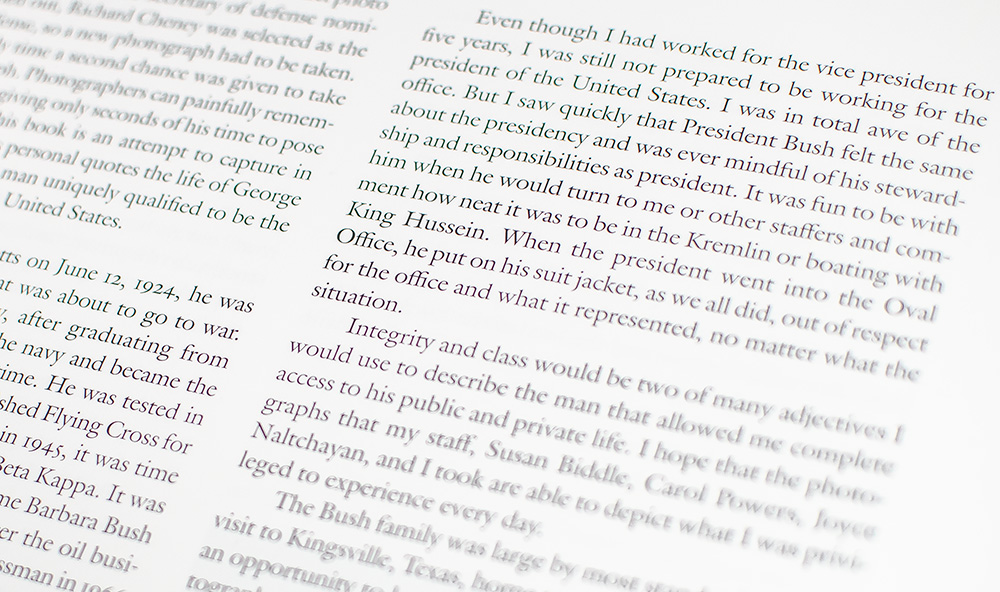 photo
secretary of defense nomi-
out, Richard Cheney was selected as the
so a new photograph had to be taken.
time a second chance was given to take
Photographers can painfully remem-
giving only seconds of his time to pose
his book is an attempt to capture in
personal quotes the life of George
man uniquely qualified to be the
United States.
tts on June 12, 1924, he was
at was about to go to war.
after graduating from
he navy and became the
time. He was tested in
shed Flying Cross for
in 1945, it was time
Beta Kappa. It was
me Barbara Bush
er the oil busi-
ssman in
Even though I had worked for the vice president for
five years, I was still not prepared to be working for the
president of the United States. I was in total awe of the
office. But I saw quickly that President Bush felt the same
about the presidency and was ever mindful of his steward-
ship and responsibilities as president. It was fun to be with
him when he would turn to me or other staffers and com-
ment how neat it was to be in the Kremlin or boating with
King Hussein. When the president went into the Oval
Office, he put on his suit jacket, as we all did, out of respect
for the office and what it represented, no matter what the
situation.
Integrity and class would be two of many adjectives I
would use to describe the man that allowed me complete
access to his public and private life. I hope that the photo-
graphs that my staff, Susan Biddle, Carol Powers, Joyce
Naltchayan, and I took are able to depict what I was privi-
leged to experience every day.
The Bush family was large by most
visit to Kingsville, Texas,
an opportunity